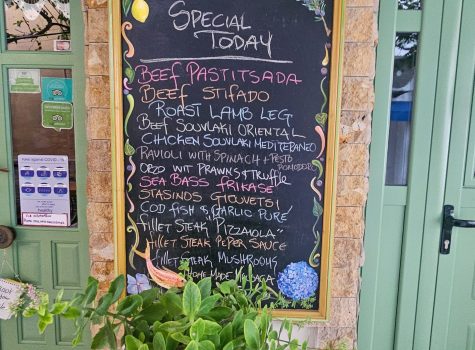 SPECIAL
TODAY
BEEF PASTITSADA
BEEF STIFADO
ROAST LAMB LEG
BEEF SOUVLAKI ORIENTAL
CHICHEN SOUVLAKI MEDITERANEO
RAVIOLI WITH SPINACH + PESTO
POMODORO
ORZO WIT PRAWNS & TRUFFLE
SEA BASS FRIKASE
STASINOS GIOUVETSI
COD FISH & GARLIC PURE'
FILLET STEAK PIZZAIOLA"
FILLET STEAK PEPER SAUCE
FILLET STEAK MUSHROOMS
HOME MADE